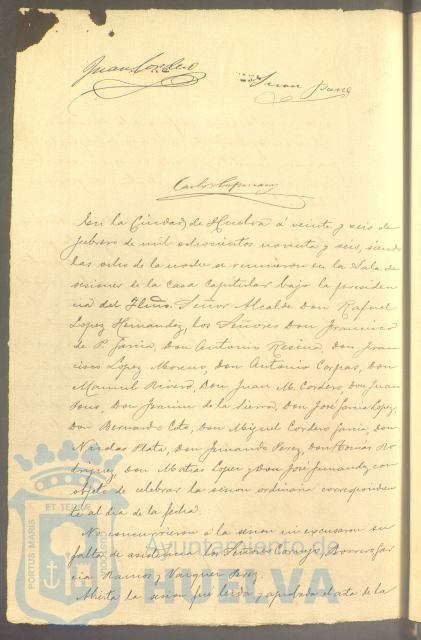 Juan Cordero
Juan Pons
En la Ciudad de Huelva á veinte y seis de
febrero de mil ochocientos noventa y seis, siendo
las ocho de la noche se reunieron en la Sala de
sesiones de la Casa Capitular bajo la presiden
cia del Ilmo. Señor Alcalde Don Rafael
Lopez Hernandez, los Señores Don Francisco
de P. Garcia, Don Antonio Resina, Don Fran
cisco Lopez Moreno, Don Antonio Corpas, Don
Manuel Rivero, Don Juan M. Cordero, Don Juan
Pons, Don Joaquin de la Sierra, Don José Garcia Lopez,
Don Bernardo Coto, Don Miguel Cordero Garcia, Don
Nicolas Plata, Don Fernando Perez, Don Tomás Ro
driguez, Don Matias Lopez y Don José Fernandez, con
objeto de celebrar la sesion ordinaria correspondien
te al dia de la fecha.
No concurrieron á la sesion ni escusaron su
falta de asistencia los Señores Garcia
Ramos y Vazquez Perez.
Abierta la sesion fué leida y aprobada el acta de la
PORTUS MARIS
ET TERRE
CUSTODIA
Ayuntamiento de
HUELVA